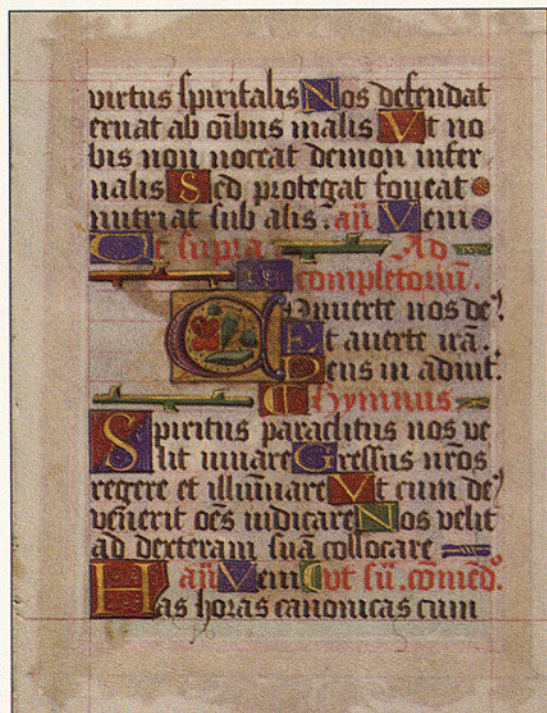 virtus spiritalis Nos defendat
eruat ab oībus malis Vt no
bis non noceat demon infer
nalis Sed protegat foueat
nutriat sub alis . añ Veni
Ut supra Ad
completoriū.
Conuerte nos de⁹.
Et auerte irā.
Deus in adiut.
Hymnus
Spiritus paraclitus nos ve
lit iuuare Gressus nr̄os
regere et illūinare Vt cum de⁹
venerit oēs iudicare Nos velit
ad dexteram suā collocare
añ Veni vt sū . cōmēd.
Has horas canonicas cum